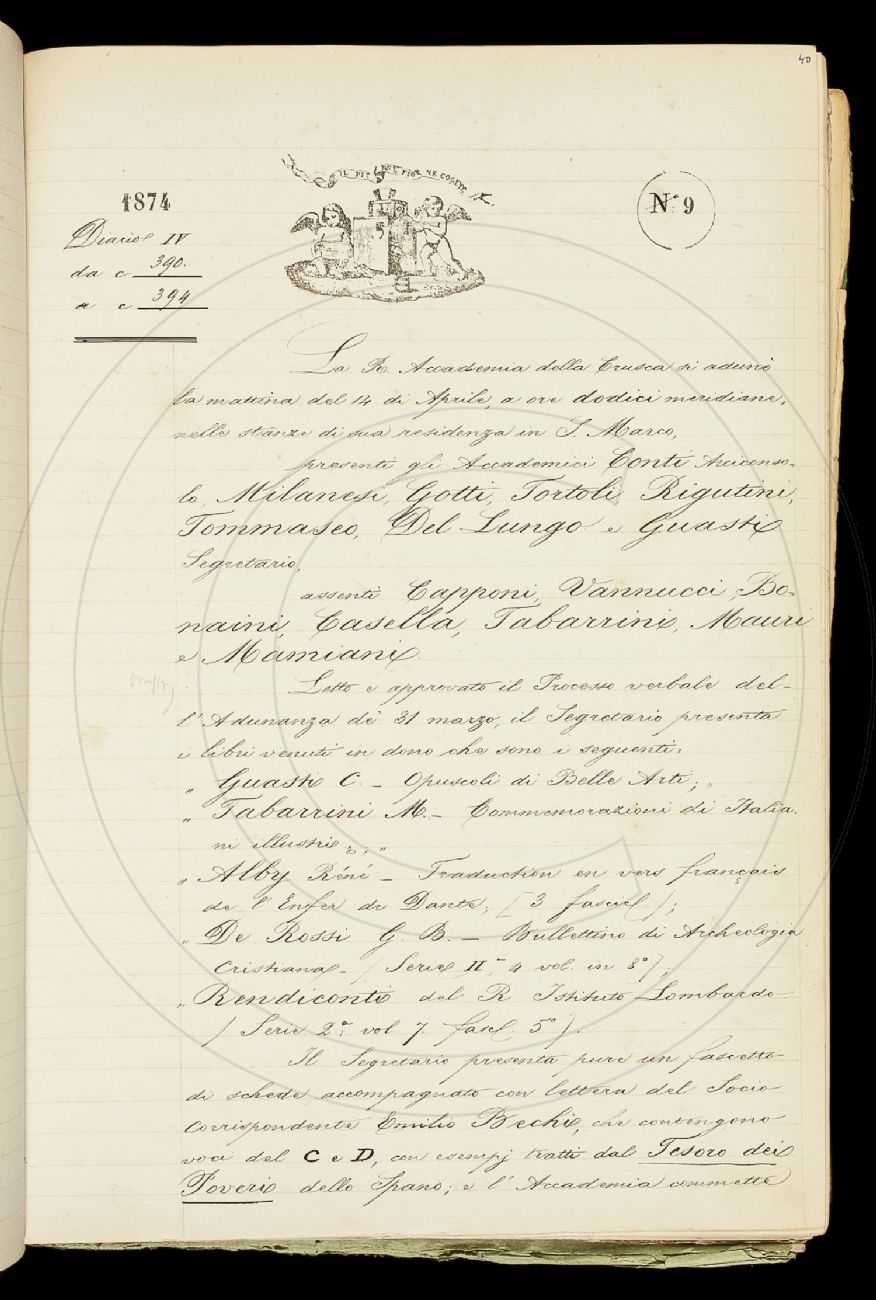 40
1874
IL PIÙ BEL FIOR NE COGLIE
N.º 9
Diario IV
da c 390.
a c 394
La R. Accademia della Crusca si adunò
la mattina del 14 di Aprile, a ore dodici meridiane,
nelle stanze di sua residenza in S. Marco,
presenti gli Accademici Conti Arciconso-
lo, Milanesi, Gotti, Tortoli, Rigutini,
Tommaseo, Del Lungo e Guasti
Segretario,
assenti Capponi, Vannucci, Bo-
naini, Casella, Tabarrini, Mauri
e Mamiani.
Letto e approvato il Processo verbale del-
l'Adunanza de' 31 marzo, il Segretario presenta
i libri venuti in dono che sono i seguenti:
„ Guasti C. – Opuscoli di Belle Arti; „
„ Tabarrini M. – Commemorazioni di Italia-
ni illustri; „
„ Alby Réné – Traduction en vers français
de l'Enfer de Dante; (3 fascic.);
„ De Rossi G. B. – Bullettino di Archeologia
Cristiana – (Serie IIª, 4 vol. in 8º);
„ Rendiconti del R. Istituto Lombardo
(Serie 2ª vol. 7. fasc. 5º).
Il Segretario presenta pure un fascetto
di schede, accompagnato con lettera del Socio
Corrispondente Emilio Bechi, che contengono
voci del C e D, con esempj tratti dal Tesoro dei
Poveri dello Spano; e l'Accademia commette